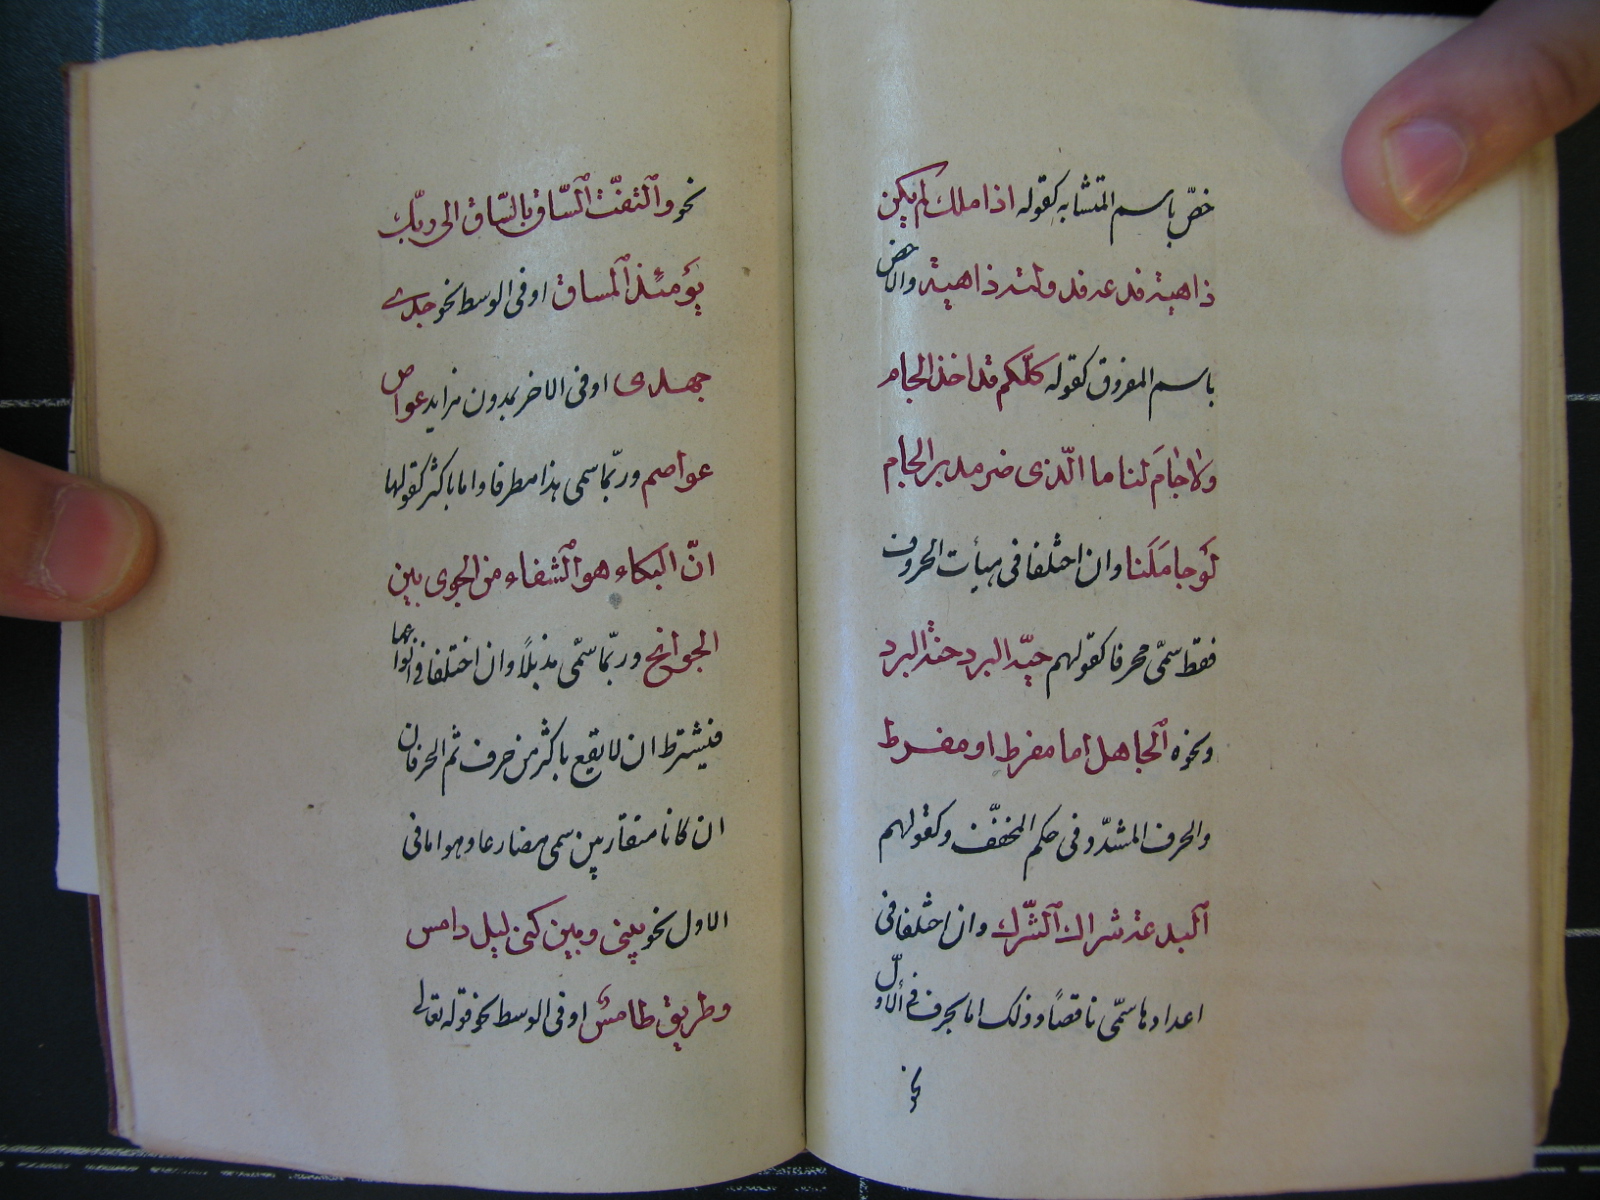 خصّ باسم المتشابه كقوله اذا ملك لم يكن
ذاهبة فدعه فدولته ذاهبة والاخص
باسم المفروق كقوله كلّكم قد اخذ الجام
ولا جامَ لنا ما الّذى ضر مدير الجام
لَو جامَلَنا وان اختلفا فى هيأت الحروف
فقط سمّى محرفا كقولهم جبّة البرد جنة البرد
ونحوه الجاهل اما مفرط او مفرط
والحرف المشدّد فى حكم المخفّف وكقولهم
البدعة شراك الشّرك وان اختلفا فى
اعدادها سمّى ناقصاً وذلك اما بحرف فى الاوّل
نحو
نحو والتفّت السّاق بالسّاق الى ربّك
يَومئذ المساق او فى الوسط نحو جدے
جهدى او فى الاخر يمدون من ايد عواص
عواصم وربّما سمى هذا مطرفا واما باكثر كقولها
انّ البكاء هو الشفاء من الجوى بين
الجوانح وربّما سمّى مذيلاً وان اختلفا فى انواعها
فيشترط ان لا يقع باكثر من حرف ثم الحرفان
ان كانا متقاربين سمى مضارعا وهو اما فى
الاول نحو بينى وبين كنى ليل دامس
وطريق طامس او فى الوسط نحو قوله تعالى